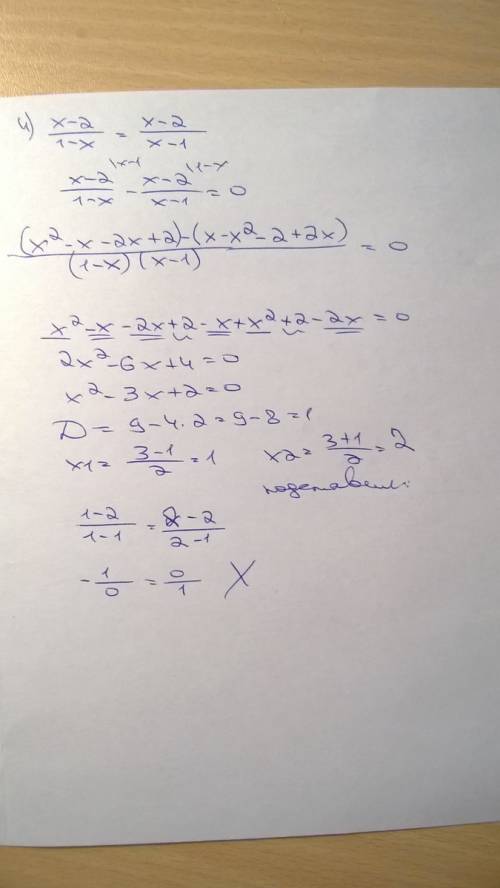 4) x-2/1-x = x-2/x-1
x-2/1-x \x-1 - x-2/x-1 \1-x = 0
(x²-x-2x+2)-(x-x²-2+2x)/(1-x)(x-1) = 0
x²-x-2x+2-x+x²+2-2x=0
2x²-6x+4=0
x²-3x+2=0
D=9-4·2=9-8=1
x1=3-1/2=1 x2=3+1/2=2
подставим:
1-2/1-1=2-2/2-1
-1/0=0/1 X